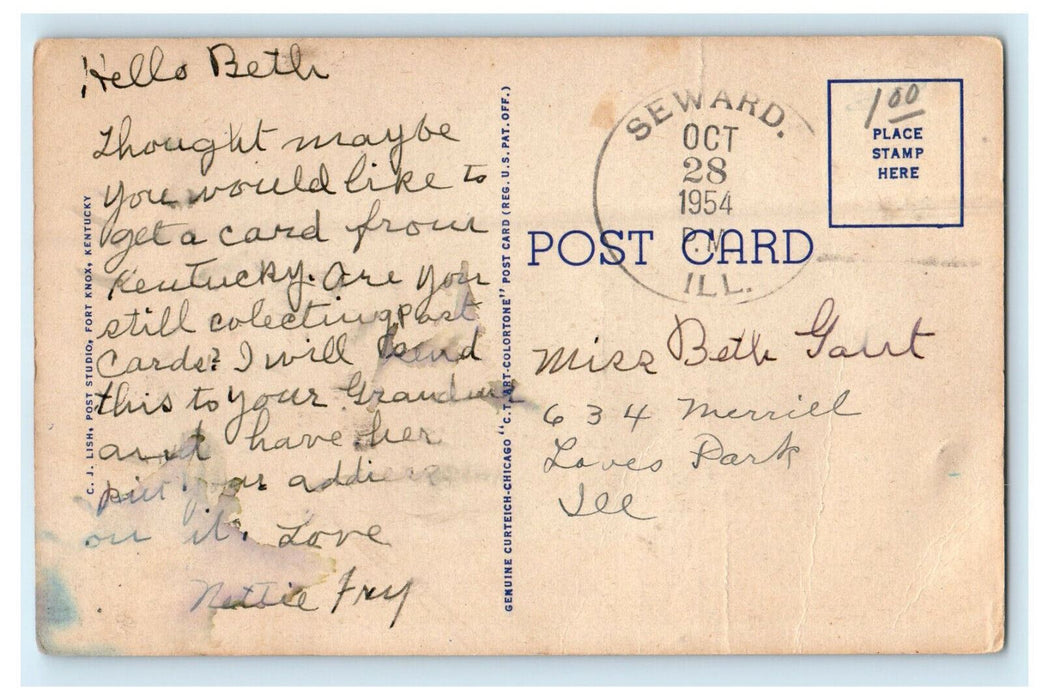 Hello Beth
Thought maybe
you would like to
get a card from
Kentucky. Are you
still colecting post
cards? I will send
this to your Grandma
and have her
put your addiess
on it. Love
Nettie Fry
C. J. LISH, POST STUDIO, FORT KNOX, KENTUCKY
GENUINE CURTEICH-CHICAGO "C.T. ART-COLORTONE" POST CARD (REG. U.S. PAT. OFF.)
SEWARD.
OCT
28
1954
P.M.
ILL.
POST CARD
1 00
PLACE
STAMP
HERE
Miss Beth
634 Merrill
Loves Park
Ill